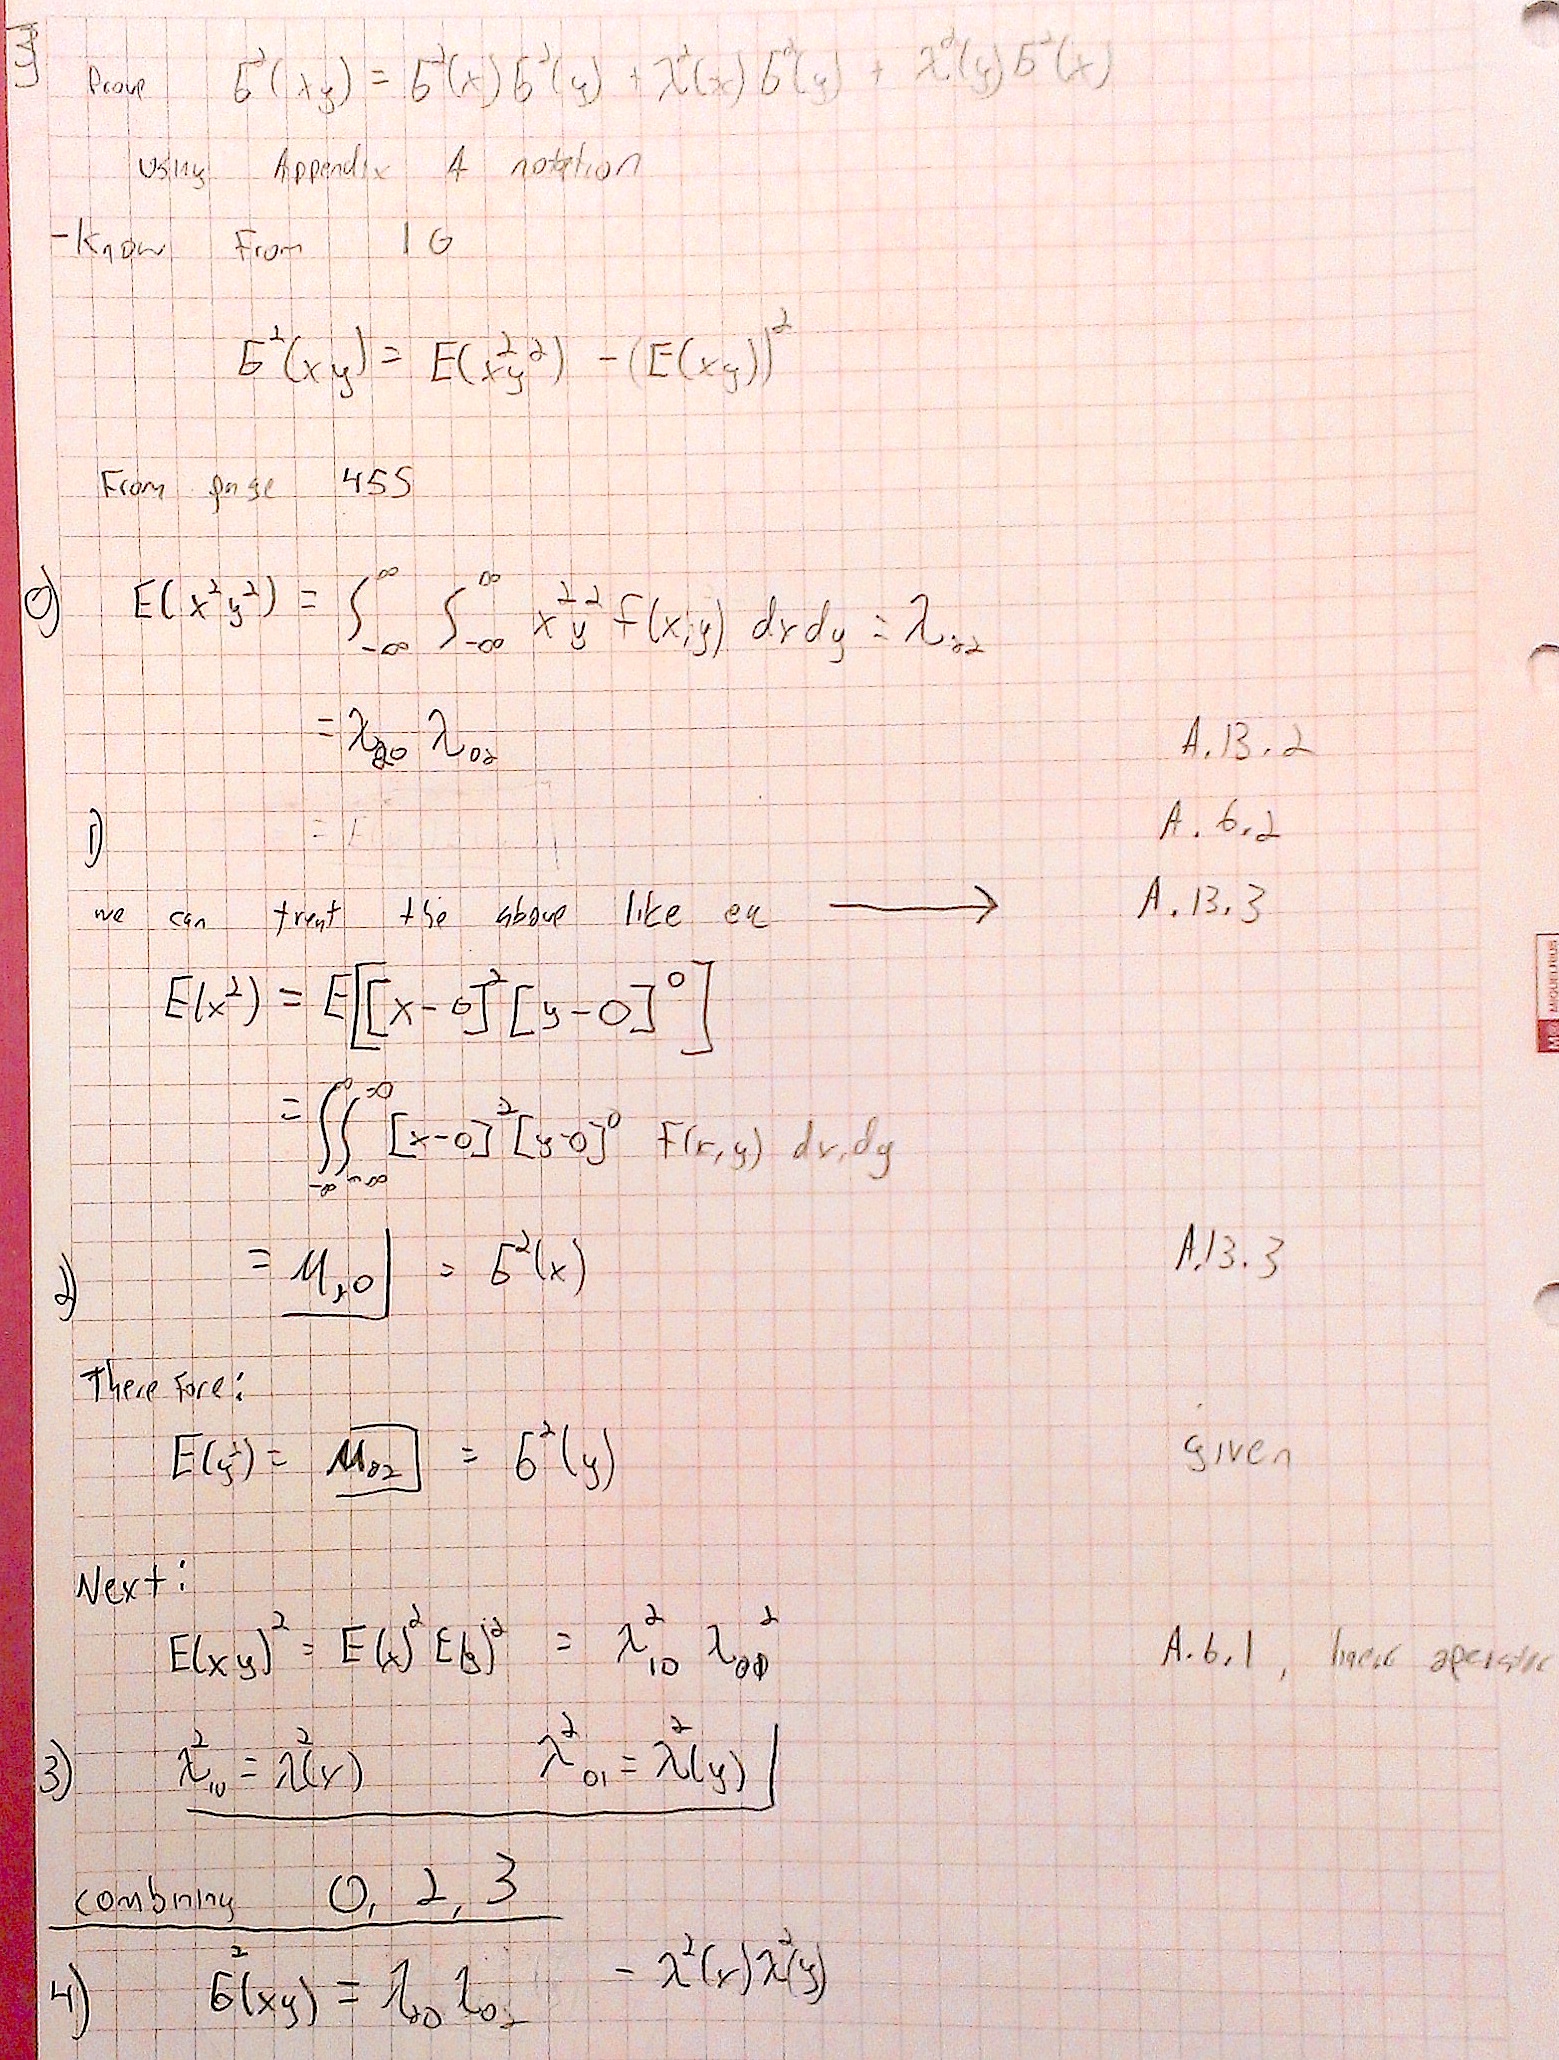 Prove σ²(xy) = σ²(x)σ²(y) + λ²(x)σ²(y) + λ²(y)σ²(x)
using Appendix A notation
- Know From 1G
σ²(xy) = E(x²y²) - (E(xy))²
From page 455
0) E(x²y²) = ∫_{-∞}^{∞} ∫_{-∞}^{∞} x²y² f(x,y) dx dy = λ₂₂
= λ₂₀ λ₀₂ A.13.2
1) A.6.2
we can treat the above like eq ⟶ A.13.3
E(x²) = E[[x-0]²[y-0]⁰]
= ∫_{-∞}^{∞}∫_{-∞}^{∞} [x-0]²[y-0]⁰ F(x,y) dx,dy
2) = μ₂₀ = σ²(x) A.13.3
Therefore:
E(y²) = μ₀₂ = σ²(y) given
Next:
E(xy)² = E(x)² E(y)² = λ²₁₀ λ₀₁² A.6.1, linear operator
3) λ²₁₀ = λ²(x) λ²₀₁ = λ²(y)
combining 0, 2, 3
4) σ²(xy) = λ₂₀ λ₀₂ - λ²(x)λ²(y)